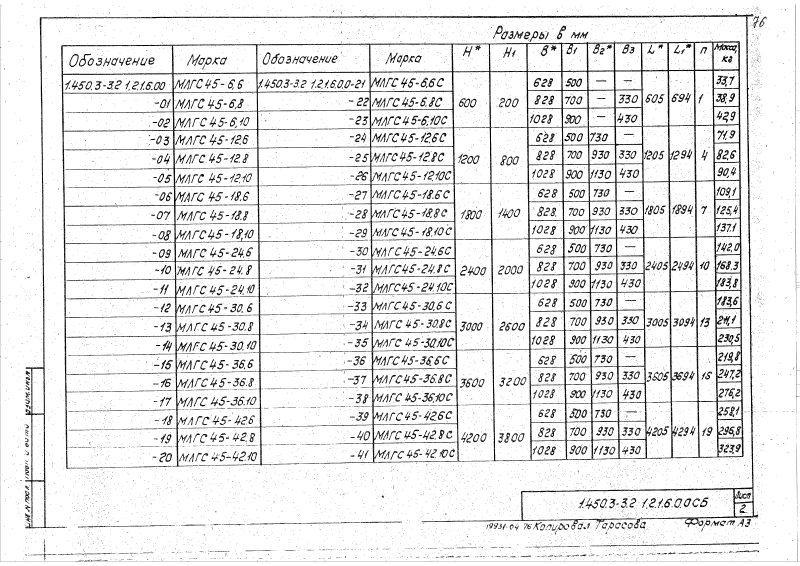 76
Размеры в мм
Обозначение Марка Обозначение Марка H* H1 B* B1 B2* B3 L* L1* n Масса, кг
1.450.3-3.2 1.2.1.6.00 МЛГС45-6,6 1.450.3-3.2 1.2.1.6.0.0-21 МЛГС45-6,6С 600 200 628 500 — — 605 694 1 33,7
-01 МЛГС45-6,8 -22 МЛГС45-6,8С 828 700 — 330 38,9
-02 МЛГС45-6,10 -23 МЛГС45-6,10С 1028 900 — 430 42,9
-03 МЛГС45-12.6 -24 МЛГС45-12.6С 1200 800 628 500 730 — 1205 1294 4 71,9
-04 МЛГС45-12.8 -25 МЛГС45-12.8С 828 700 930 330 82,6
-05 МЛГС45-12.10 -26 МЛГС45-12.10С 1028 900 1130 430 90,4
-06 МЛГС45-18.6 -27 МЛГС45-18.6С 1800 1400 628 500 730 — 1805 1894 7 109,1
-07 МЛГС45-18,8 -28 МЛГС45-18,8С 828 700 930 330 125,4
-08 МЛГС45-18,10 -29 МЛГС45-18.10С 1028 900 1130 430 137.1
-09 МЛГС45-24,6 -30 МЛГС45-24,6С 2400 2000 628 500 730 — 2405 2494 10 142,0
-10 МЛГС45-24.8 -31 МЛГС45-24.8С 828 700 930 330 168,3
-11 МЛГС45-24,10 -32 МЛГС45-24.10С 1028 900 1130 430 183,8
-12 МЛГС45-30,6 -33 МЛГС45-30,6С 3000 2600 628 500 730 — 3005 3094 13 183,6
-13 МЛГС45-30,8 -34 МЛГС45-30,8С 828 700 930 330 211,1
-14 МЛГС45-30,10 -35 МЛГС45-30.10С 1028 900 1130 430 230,5
-15 МЛГС45-36,6 -36 МЛГС45-36,6С 3600 3200 628 500 730 — 3605 3694 16 219,8
-16 МЛГС45-36.8 -37 МЛГС45-36.8С 828 700 930 330 247,2
-17 МЛГС45-36.10 -38 МЛГС45-36.10С 1028 900 1130 430 276,2
-18 МЛГС45-42.6 -39 МЛГС45-42.6С 4200 3800 628 500 730 — 4205 4294 19 258,1
-19 МЛГС45-42,8 -40 МЛГС45-42,8С 828 700 930 330 296,8
-20 МЛГС45-42.10 -41 МЛГС45-42.10С 1028 900 1130 430 323,9
1.450.3-3.2 1.2.1.6.0.0СБ
Лист
2
19931-04 76 Копировал Тарасова Формат А3